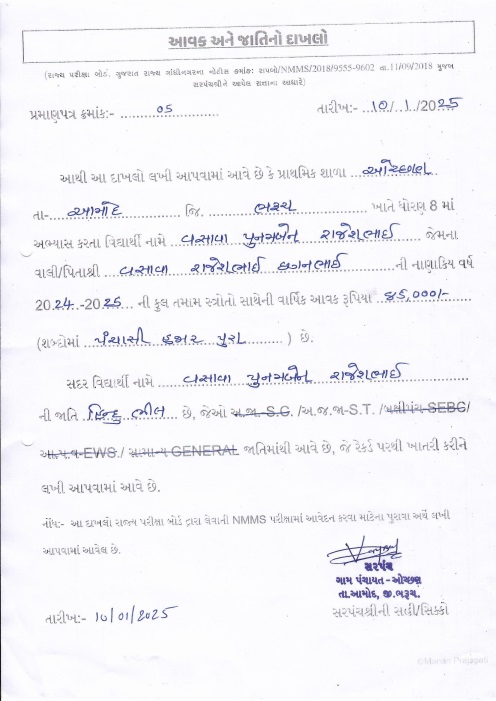 આવક અને જાતિનો દાખલો
(રાજ્ય પરીક્ષા બોર્ડ, ગુજરાત રાજ્ય ગાંધીનગરના નોટીસ ક્રમાંક: રાપબો/NMMS/2018/9555-9602 તા.11/09/2018 મુજબ
સરપંચશ્રીને આપેલ સત્તાના આધારે)
પ્રમાણપત્ર ક્રમાંક:- 05 તારીખ:- 10/1/2025
આથી આ દાખલો લખી આપવામાં આવે છે કે પ્રાથમિક શાળા ઓચ્છણ
તા- આમોદ જિ. ભરૂચ ખાતે ધોરણ 8 માં
અભ્યાસ કરતા વિદ્યાર્થી નામે વસાવા પુનગબેન રાજેશભાઈ જેમના
વાલી/પિતાશ્રી વસાવા રાજેશભાઈ છગનભાઈ ની નાણાકિય વર્ષ
2024-2025 ની કુલ તમામ સ્ત્રોતો સાથેની વાર્ષિક આવક રૂપિયા ૪૫,000/-
(શબ્દોમાં હજાર પુરા ) છે.
સદર વિદ્યાર્થી નામે વસાવા પુનગબેન રાજેશભાઈ
ની જાતિ હિન્દુ ભીલ છે, જેઓ અ.જા.-S.C. /અ.જ.જા-S.T. /બક્ષીપંચ-SEBC/
આ.પ.વ-EWS./ સામાન્ય GENERAL જાતિમાંથી આવે છે, જે રેકર્ડ પરથી ખાતરી કરીને
લખી આપવામાં આવે છે.
નોંધ:- આ દાખલો રાજ્ય પરીક્ષા બોર્ડ દ્વારા લેવાની NMMS પરીક્ષામાં આવેદન કરવા માટેના પુરાવા અર્થે લખી
આપવામાં આવેલ છે.
સરપંચ
ગામ પંચાયત - ઓચ્છણ
તા.આમોદ, જી.ભરૂચ.
તારીખ:- 10/01/2025 સરપંચશ્રીની સહી/સિક્કો